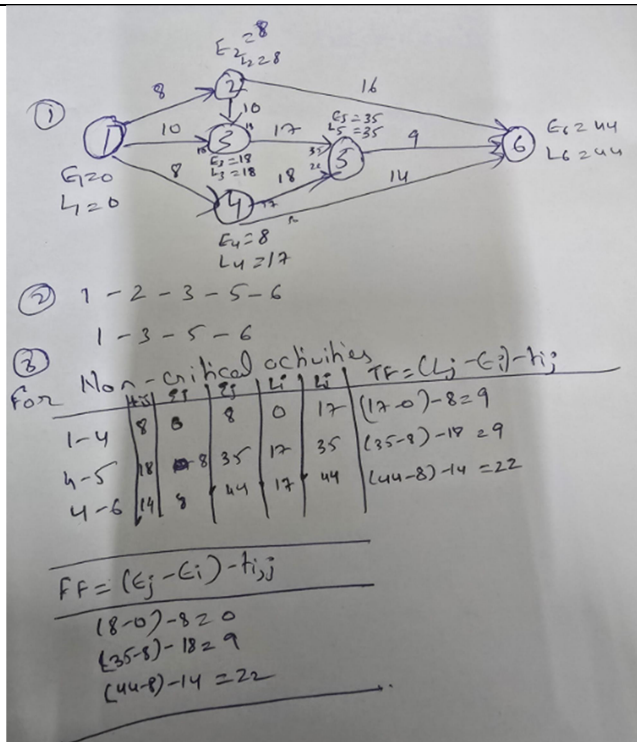 E2=8
L2=8
①
8
16
2
10
1
10
3
18
17
E5=35
L5=35
9
6
E6=44
L6=44
E1=0
L1=0
E3=18
L3=18
5
8
18
14
4
17
E4=8
L4=17
② 1-2-3-5-6
1-3-5-6
③
For Non-critical activities
tij Ei Ej Li Lj TF=(Lj-Ei)-tij
1-4 8 0 8 0 17 (17-0)-8=9
4-5 18 8 35 17 35 (35-8)-18=9
4-6 14 8 44 17 44 (44-8)-14=22
FF=(Ej-Ei)-tij
(8-0)-8=0
(35-8)-18=9
(44-8)-14=22